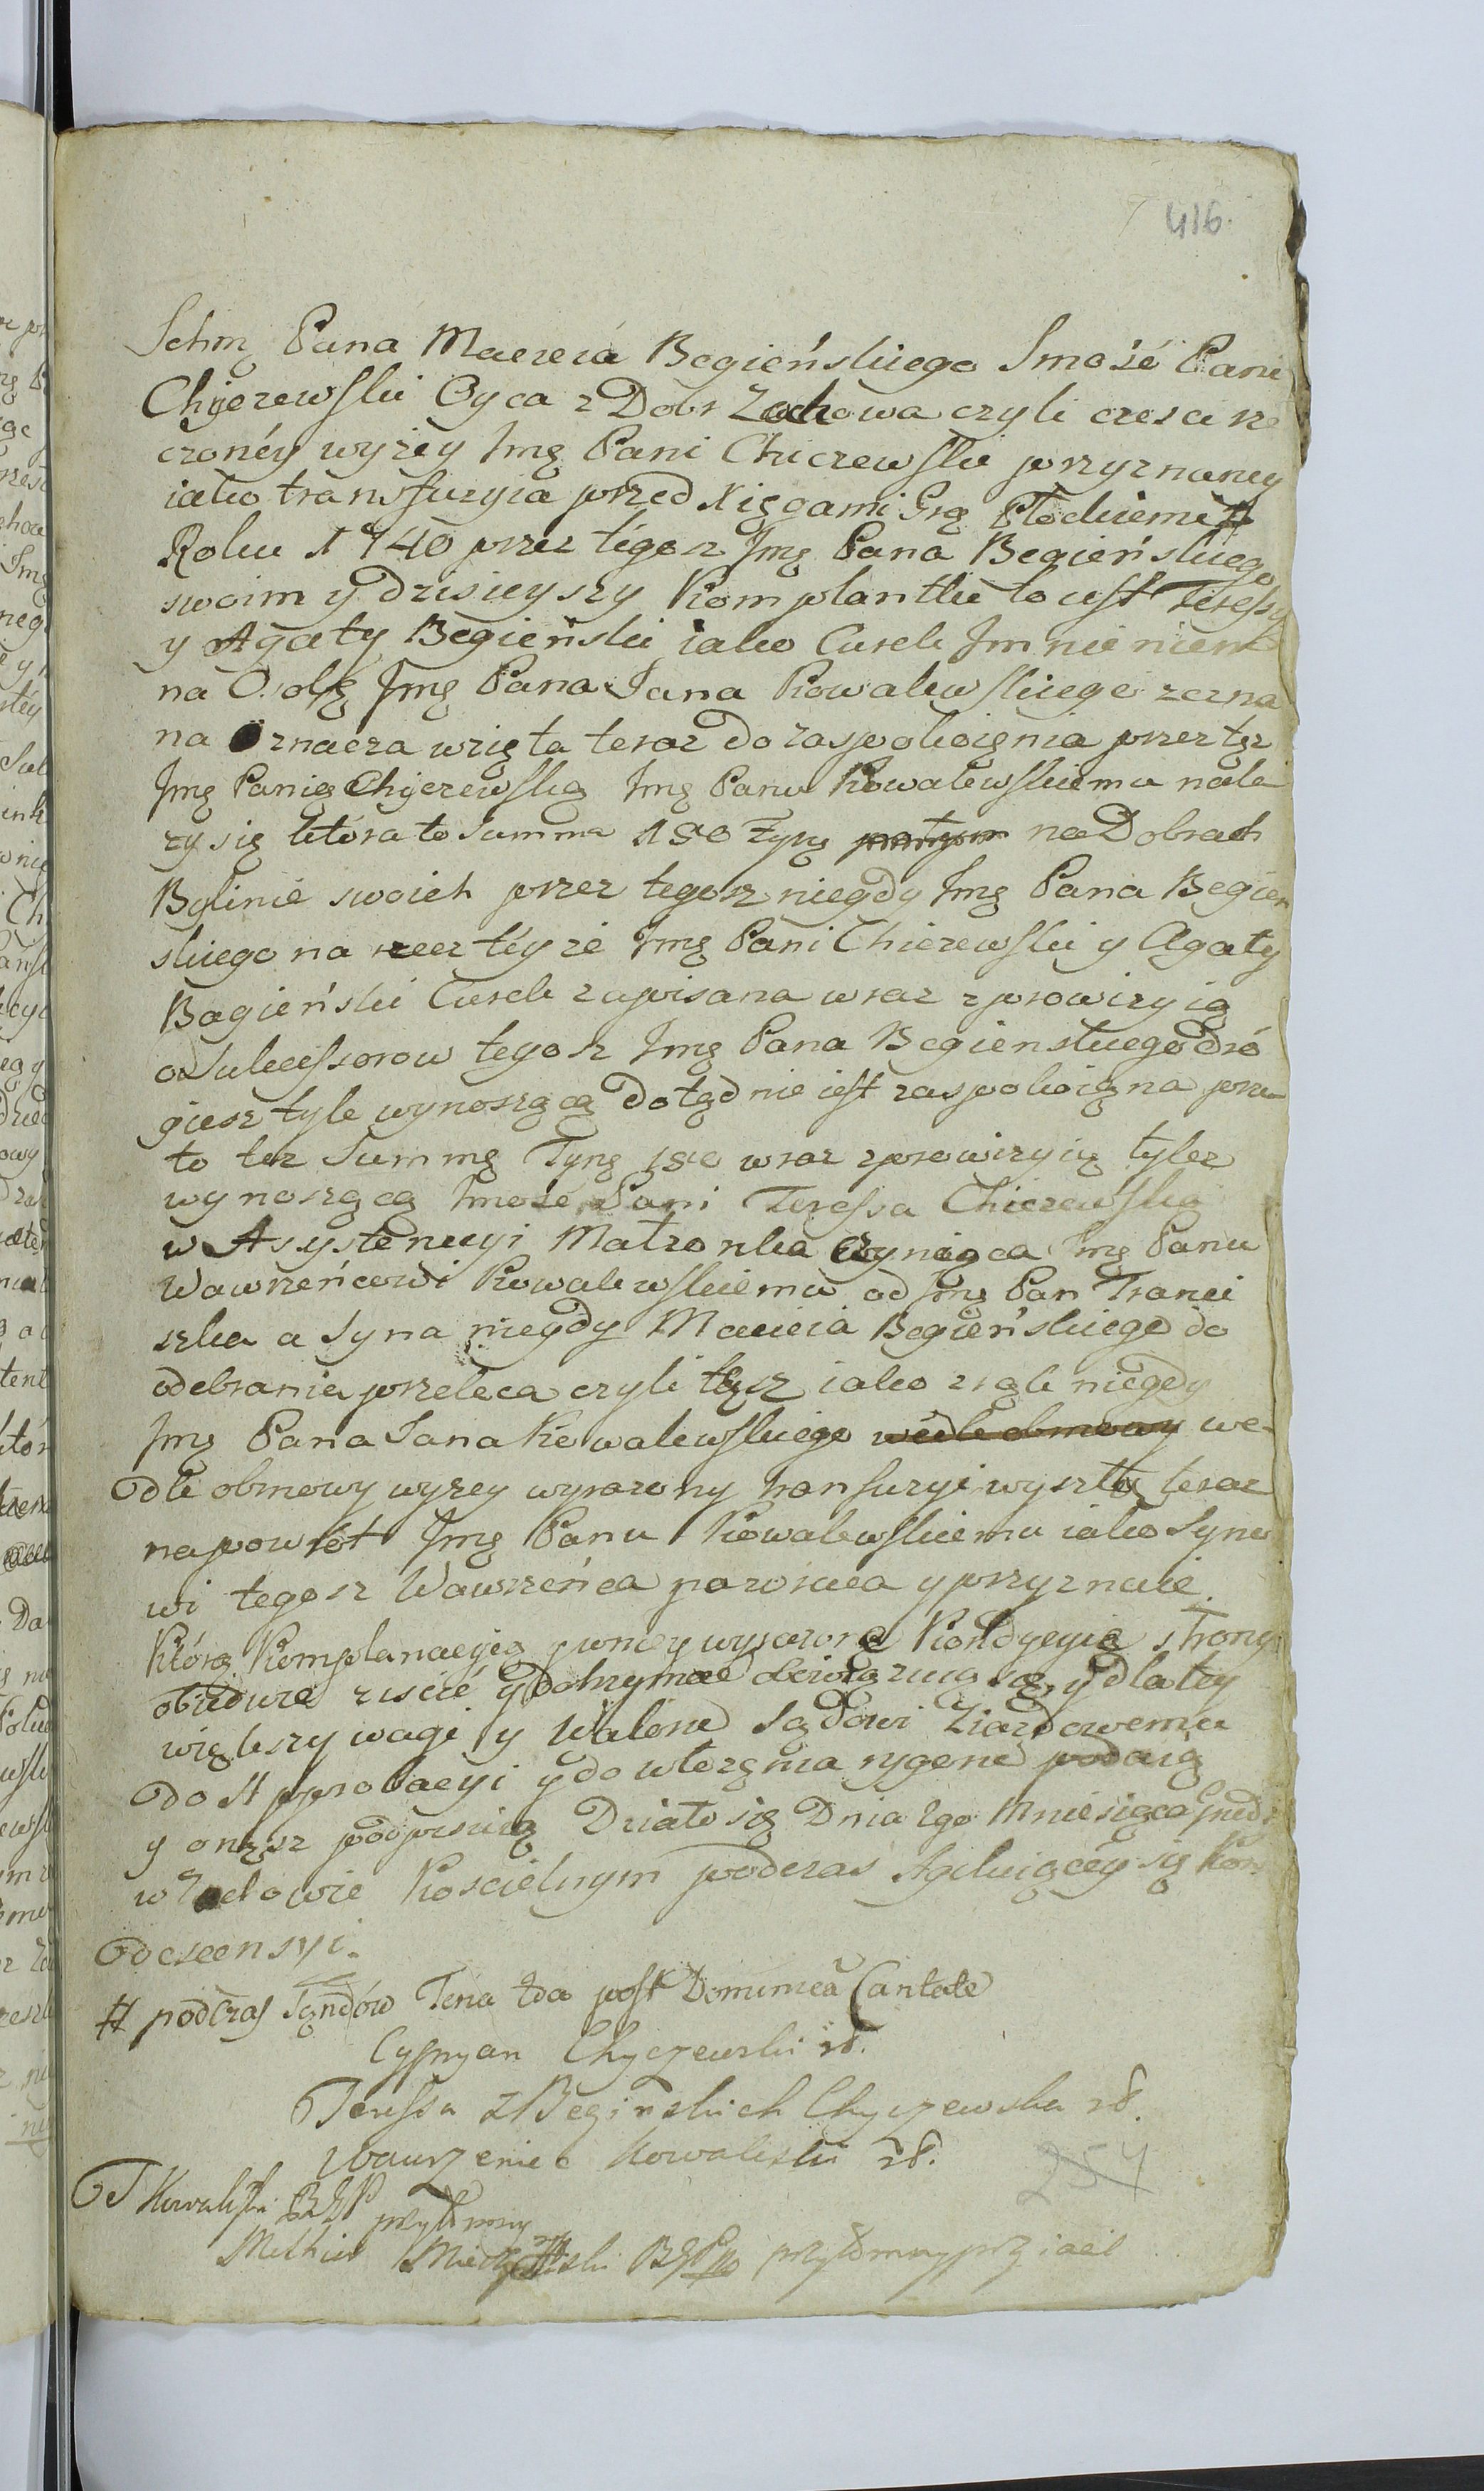 416.
Jchmę Pana Macieia Begieńskiego Jmosé Pani
Chyczewski Oyca z Dobr Zochowa czyli czesci rze
czonéy wyżey Jmę Pani Chiczewski przyznaney
iako transfuzyia przed Xięgami Grę Płockiemi #
Roku 1740 przez tégosz Jmę Pana Begieńskiego
swoim y dzisieyszy Komplantki to iest Teressy
y Agaty Begieński iako Curek Jmnieniem
na Osobę Jmę Pana Jana Kowalewskiego zezna
na Oznacza wzięta teraz do zaspokoięnia przez tęz
Jmę Panią Chyczewską Jmę Panu Kowalewskiemu nale
zy się ktora to Summa 180 Tynę na Dobrach
Bylinie swoich przez tegosz niegdy Jmę Pana Begień
skiego na rzecz téyze Jmę Pani Chiczewski y Agaty
Bagieński Curek zapisana wraz z prowizyią
od Sukcessorow tegosz Jmę Pana Begienskiego dró
giesz tyle wynoszącą dotąd nie iest zaspokoięna prze
to też Summę Tynę 180 wraz z prowizyią tylez
wynoszącą Jmosé Pani Teressa Chiczewska
w Asystencyi Małzonka Czyniąca Jmę Panu
Wawrzeńcowi Kowalewskiemu od Jmę Pan Franci
szka a Syna niegdy Macieia Begieńskiego do
odebrania przeleca czyli tęsz iako z rąk niegdy
Jmę Pana Jana Kowalewskiego wedle obmowy we-
dle obmowy wyzey wyrazony transfuzyi wyszłą teraz
napowrót Jmę Panu Kowalewskiemu iako Syno
wi tegosz Wawrzeńca pozwraca y przyznaie.
Którą Komplanacyią y w niey wyrazone Kondycyie strony
obiedwie ziscić y dotrzymać obowięzuią się, y dla tey
większy wagi y Walone Sądowi Ziazdowemu
do Approbacyi y do włozęnia rygene podaią
y onęsz podpisuią Działo się Dnia 2go Mniesiąca Grud
w Zochowie Koscielnym podczas Agituiącéy się Kon
descensyi.
# podczas Sąndów Tena 4da post Dominicã Cantate
Cypryan Chyczewski rß.
Teressa z Begińskich Chyczewska rß.
Wawrzeniec Kowaleski rß.
T Kowalski BZP przytomny
257
Melhior BZP przytomny prziaciel